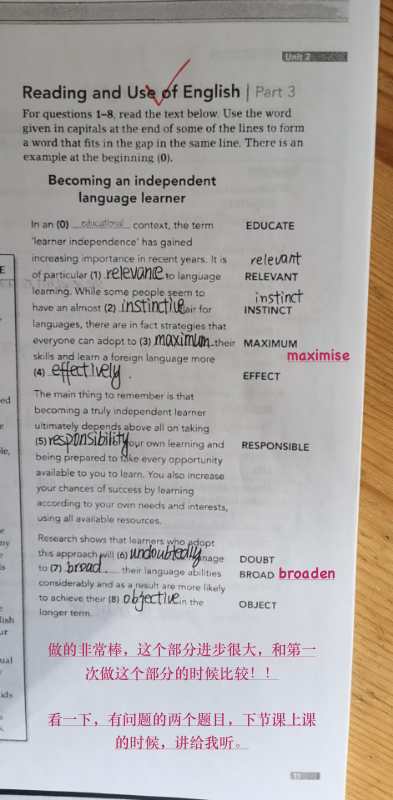 Unit 2
Reading and Use of English | Part 3
For questions 1–8, read the text below. Use the word
given in capitals at the end of some of the lines to form
a word that fits in the gap in the same line. There is an
example at the beginning (0).
Becoming an independent
language learner
In an (0) educational context, the term EDUCATE
'learner independence' has gained
increasing importance in recent years. It is relevant
of particular (1) relevance to language RELEVANT
learning. While some people seem to instinct
have an almost (2) instinctive air for INSTINCT
languages, there are in fact strategies that
everyone can adopt to (3) maximum their MAXIMUM
maximise
skills and learn a foreign language more
(4) effectively. EFFECT
The main thing to remember is that
becoming a truly independent learner
ultimately depends above all on taking
(5) responsibility your own learning and RESPONSIBLE
being prepared to take every opportunity
available to you to learn. You also increase
your chances of success by learning
according to your own needs and interests,
using all available resources.
Research shows that learners who adopt
this approach will (6) undoubtedly nage DOUBT
to (7) broad their language abilities BROAD broaden
considerably and as a result are more likely
to achieve their (8) objective in the OBJECT
longer term.
做的非常棒，这个部分进步很大，和第一
次做这个部分的时候比较！！
看一下，有问题的两个题目，下节课上课
的时候，讲给我听。
11